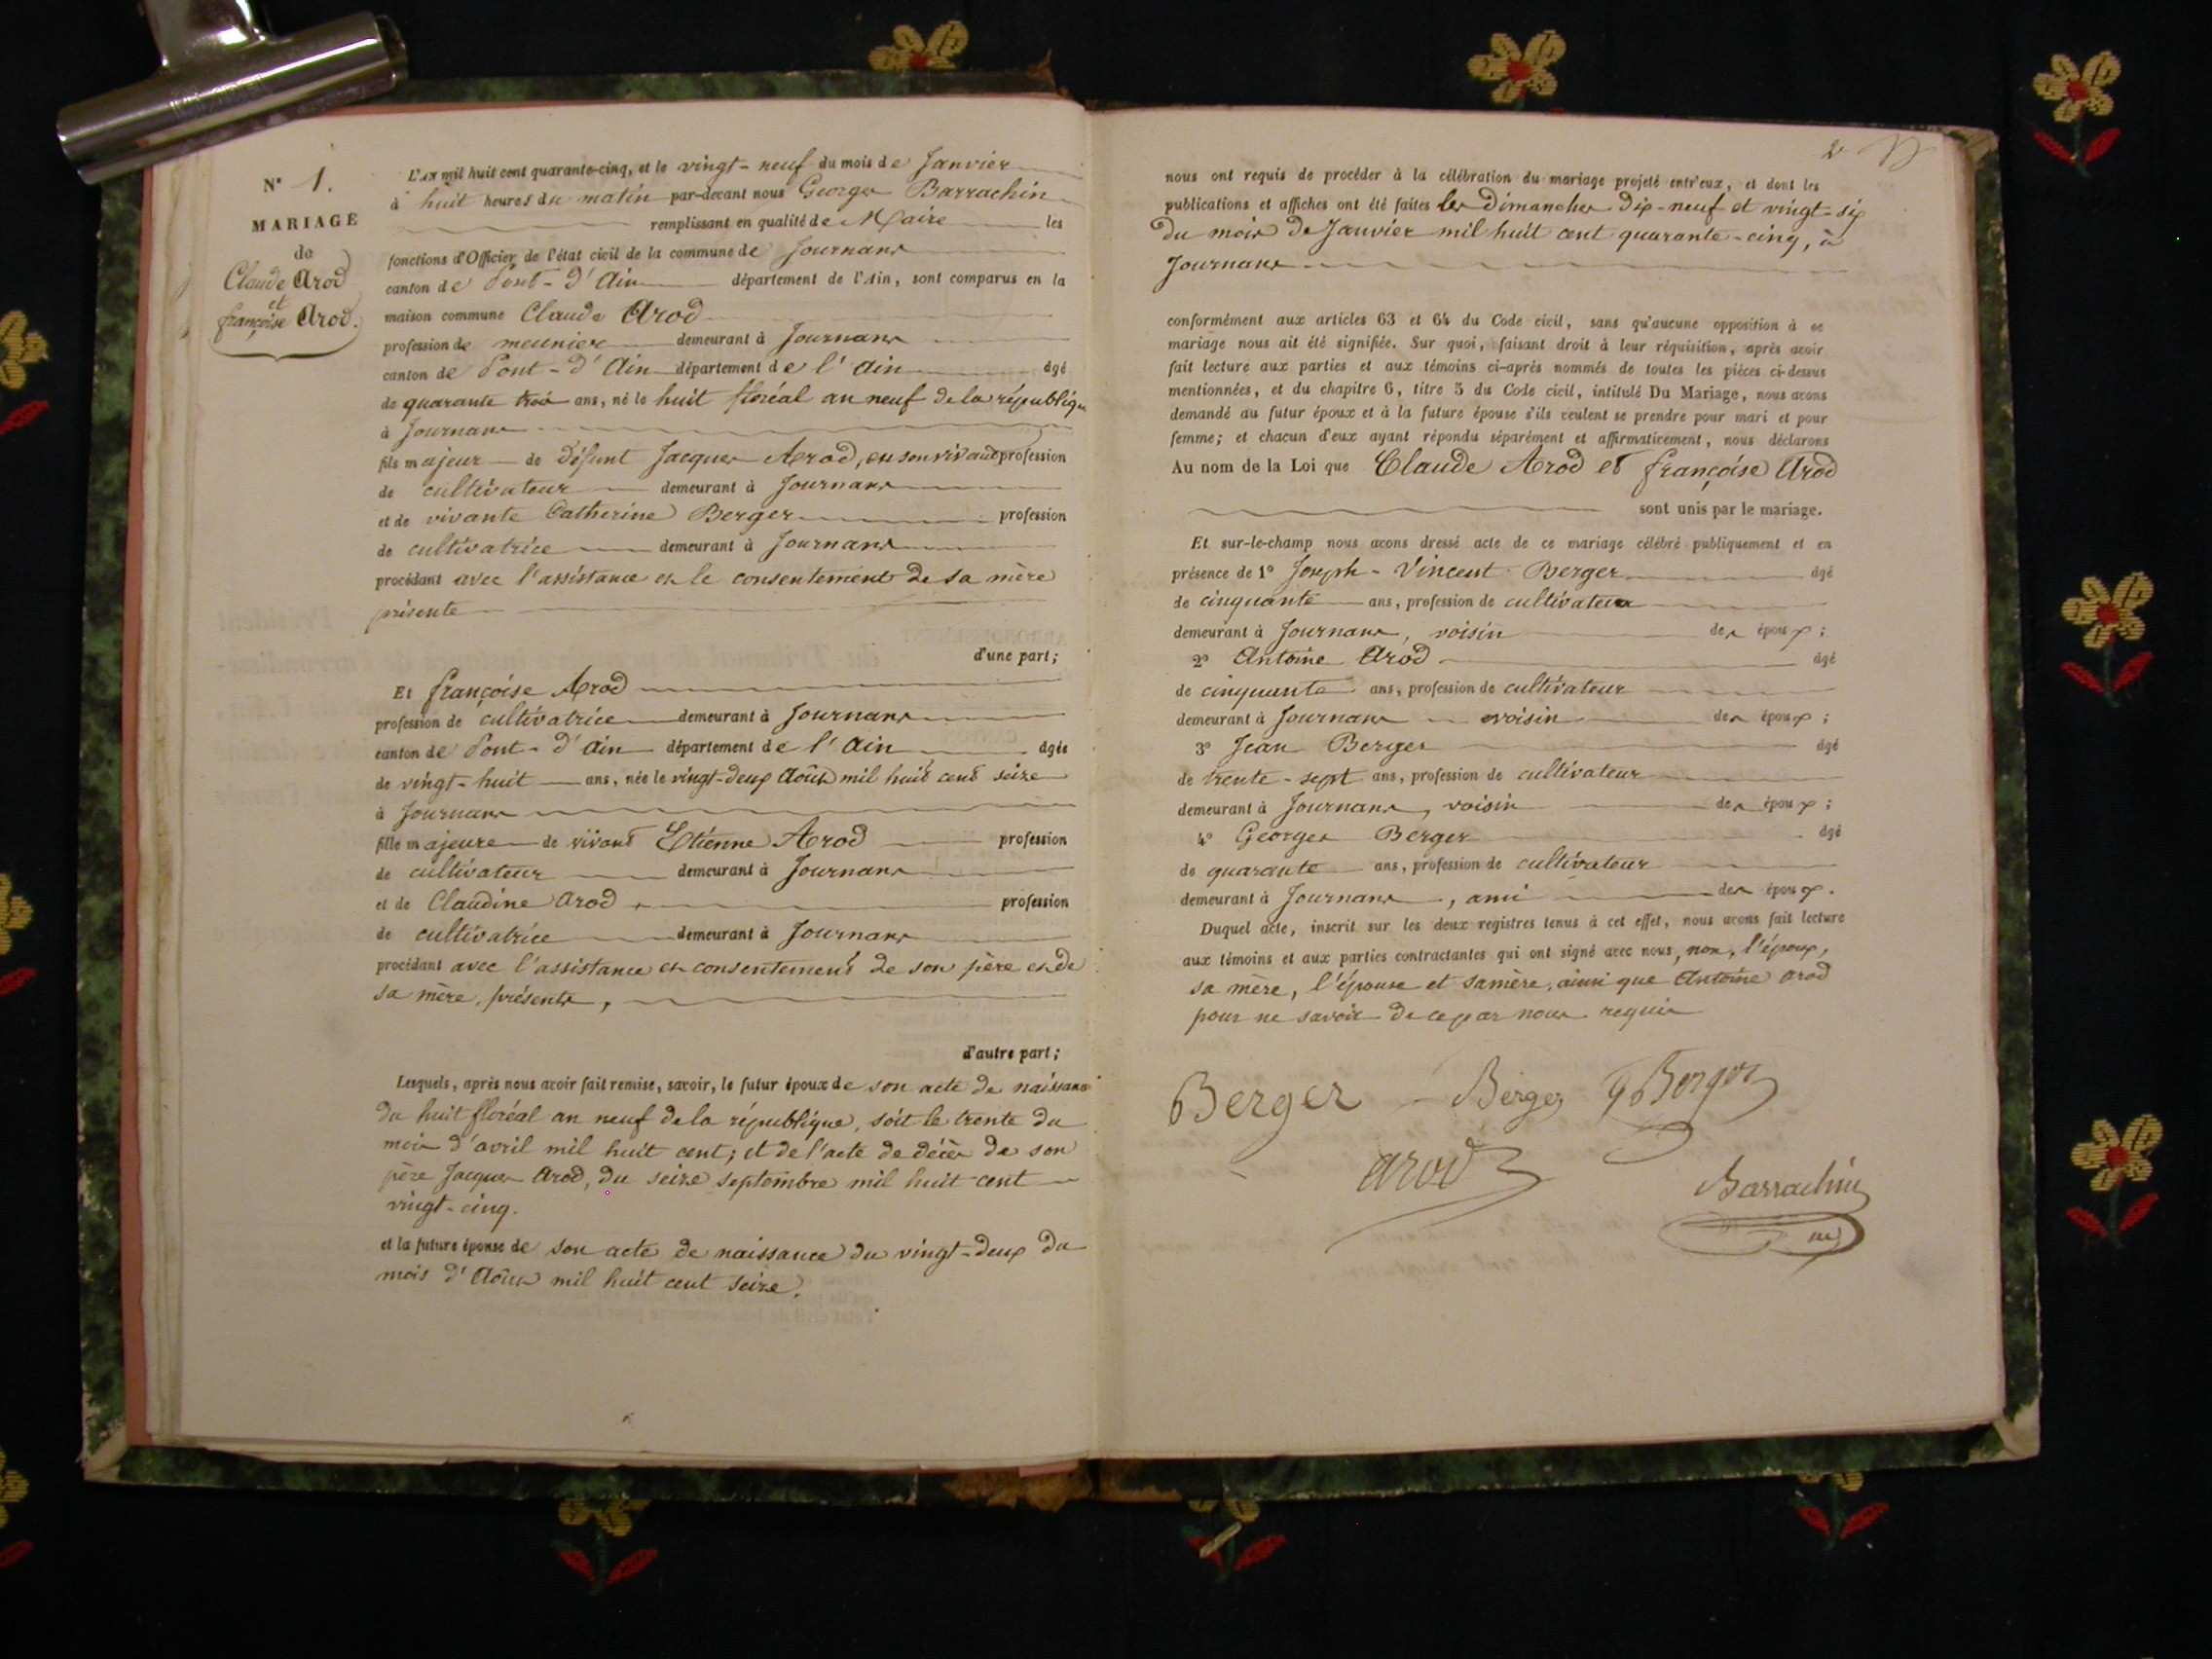 N° 1.
MARIAGE
de
Claude Arod
et
françoise Arod.
L'AN mil huit cent quarante-cinq, et le vingt-neuf du mois de Janvier
à huit heures du matin par-devant nous Georges Barrachin
remplissant en qualité de Maire les
fonctions d'Officier de l'état civil de la commune de Journans
canton de Pont-d'Ain département de l'Ain, sont comparus en la
maison commune Claude Arod
profession de meunier demeurant à Journans
canton de Pont-d'Ain département de l'Ain âgé
de quarante trois ans, né le huit floréal an neuf de la républiqu
à Journans
fils majeur de défunt Jacques Arod, en son vivant profession
de cultivateur demeurant à Journans
et de vivante Catherine Berger profession
de cultivatrice demeurant à Journans
procédant avec l'assistance et le consentement de sa mère
présente
d'une part;
Et françoise Arod
profession de cultivatrice demeurant à Journans
canton de Pont-d'Ain département de l'Ain âgée
de vingt-huit ans, née le vingt-deux Août mil huit cent seize
à Journans
fille majeure de vivant Etienne Arod profession
de cultivateur demeurant à Journans
et de Claudine Arod profession
de cultivatrice demeurant à Journans
procédant avec l'assistance et consentement de son père et de
sa mère, présents,
d'autre part;
Lesquels, après nous avoir fait remise, savoir, le futur époux de son acte de naissance
du huit floréal an neuf de la république, soit le trente du
mois d'avril mil huit cent; et de l'acte de décès de son
père Jacques Arod, du seize septembre mil huit cent
vingt-cinq.
et la future épouse de son acte de naissance du vingt-deux du
mois d'Août mil huit cent seize.
2
nous ont requis de procéder à la célébration du mariage projeté entr'eux, et dont les
publications et affiches ont été faites les Dimanches dix-neuf et vingt-six
du mois de Janvier mil huit cent quarante-cinq, à
Journans
conformément aux articles 63 et 64 du Code civil, sans qu'aucune opposition à ce
mariage nous ait été signifiée. Sur quoi, faisant droit à leur réquisition, après avoir
fait lecture aux parties et aux témoins ci-après nommés de toutes les pièces ci-dessus
mentionnées, et du chapitre 6, titre 5 du Code civil, intitulé Du Mariage, nous avons
demandé au futur époux et à la future épouse s'ils veulent se prendre pour mari et pour
femme; et chacun d'eux ayant répondu séparément et affirmativement, nous déclarons
Au nom de la Loi que Claude Arod et françoise Arod
sont unis par le mariage.
Et sur-le-champ nous avons dressé acte de ce mariage célébré publiquement et en
présence de 1° Joseph-Vincent Berger âgé
de cinquante ans, profession de cultivateur
demeurant à Journans, voisin des époux;
2° Antoine Arod âgé
de cinquante ans, profession de cultivateur
demeurant à Journans voisin des époux;
3° Jean Berger âgé
de trente-sept ans, profession de cultivateur
demeurant à Journans, voisin des époux;
4° Georges Berger âgé
de quarante ans, profession de cultivateur
demeurant à Journans, ami des époux.
Duquel acte, inscrit sur les deux registres tenus à cet effet, nous avons fait lecture
aux témoins et aux parties contractantes qui ont signé avec nous, non, l'époux,
sa mère, l'épouse et sa mère, ainsi que Antoine Arod
pour ne savoir de ce par nous requis
Berger Berger G Berger
arod
Barrachin